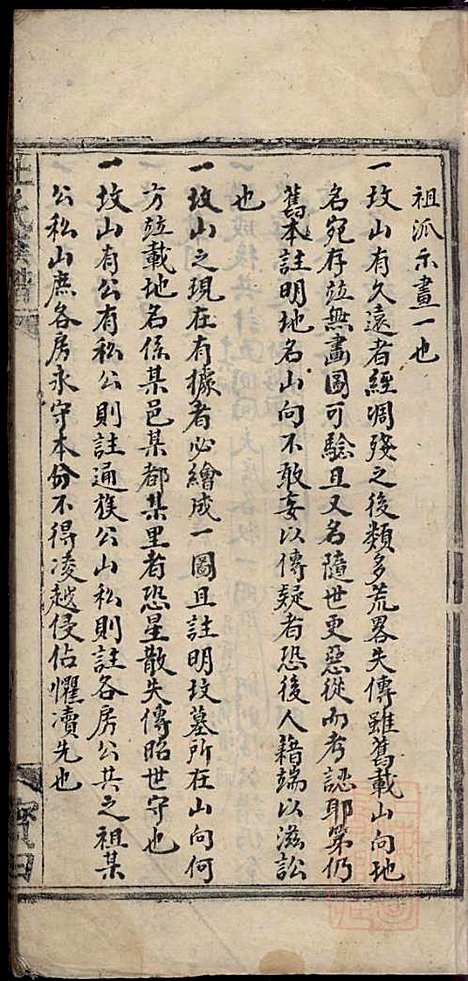 祖派示畫一也
一坟山有久遠者經凋殘之後類多荒畧失傳雖舊載山向地
名宛存竝無畵圖可驗且又名隨世更惡從而考認耶第仍
舊本註明地名山向不敢妄以傳疑者恐後人藉端以滋訟
也
一坟山之現在有據者必繪成一圖且註明坟墓所在山向何
方竝載地名係某邑某都某里者恐星散失傳昭世守也
一坟山有公有私公則註通族公山私則註各房公共之祖某
公私山庶各房永守本份不得凌越侵佔懼瀆先也